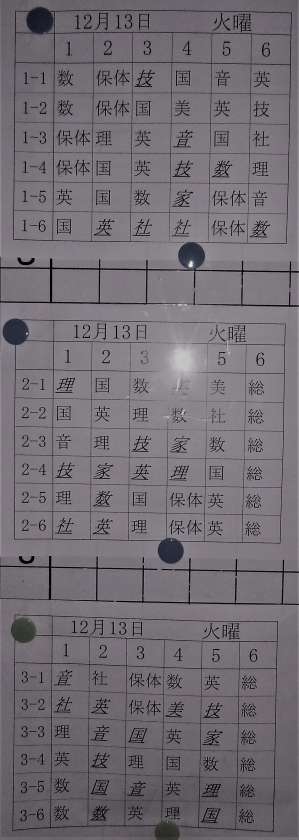 12月13日 火曜
1 2 3 4 5 6
1-1 数 保体 技 国 音 英
1-2 数 保体 国 美 英 技
1-3 保体 理 英 音 国 社
1-4 保体 国 英 技 数 理
1-5 英 国 数 家 保体 音
1-6 国 英 社 社 保体 数
12月13日 火曜
1 2 3 5 6
2-1 理 国 数 美 総
2-2 国 英 理 数 社 総
2-3 音 理 技 家 数 総
2-4 技 家 英 理 国 総
2-5 理 数 国 保体 英 総
2-6 社 英 理 保体 英 総
12月13日 火曜
1 2 3 4 5 6
3-1 音 社 保体 数 英 総
3-2 社 英 保体 美 技 総
3-3 理 音 国 英 家 総
3-4 英 技 理 国 数 総
3-5 数 国 音 英 理 総
3-6 数 数 英 理 国 総